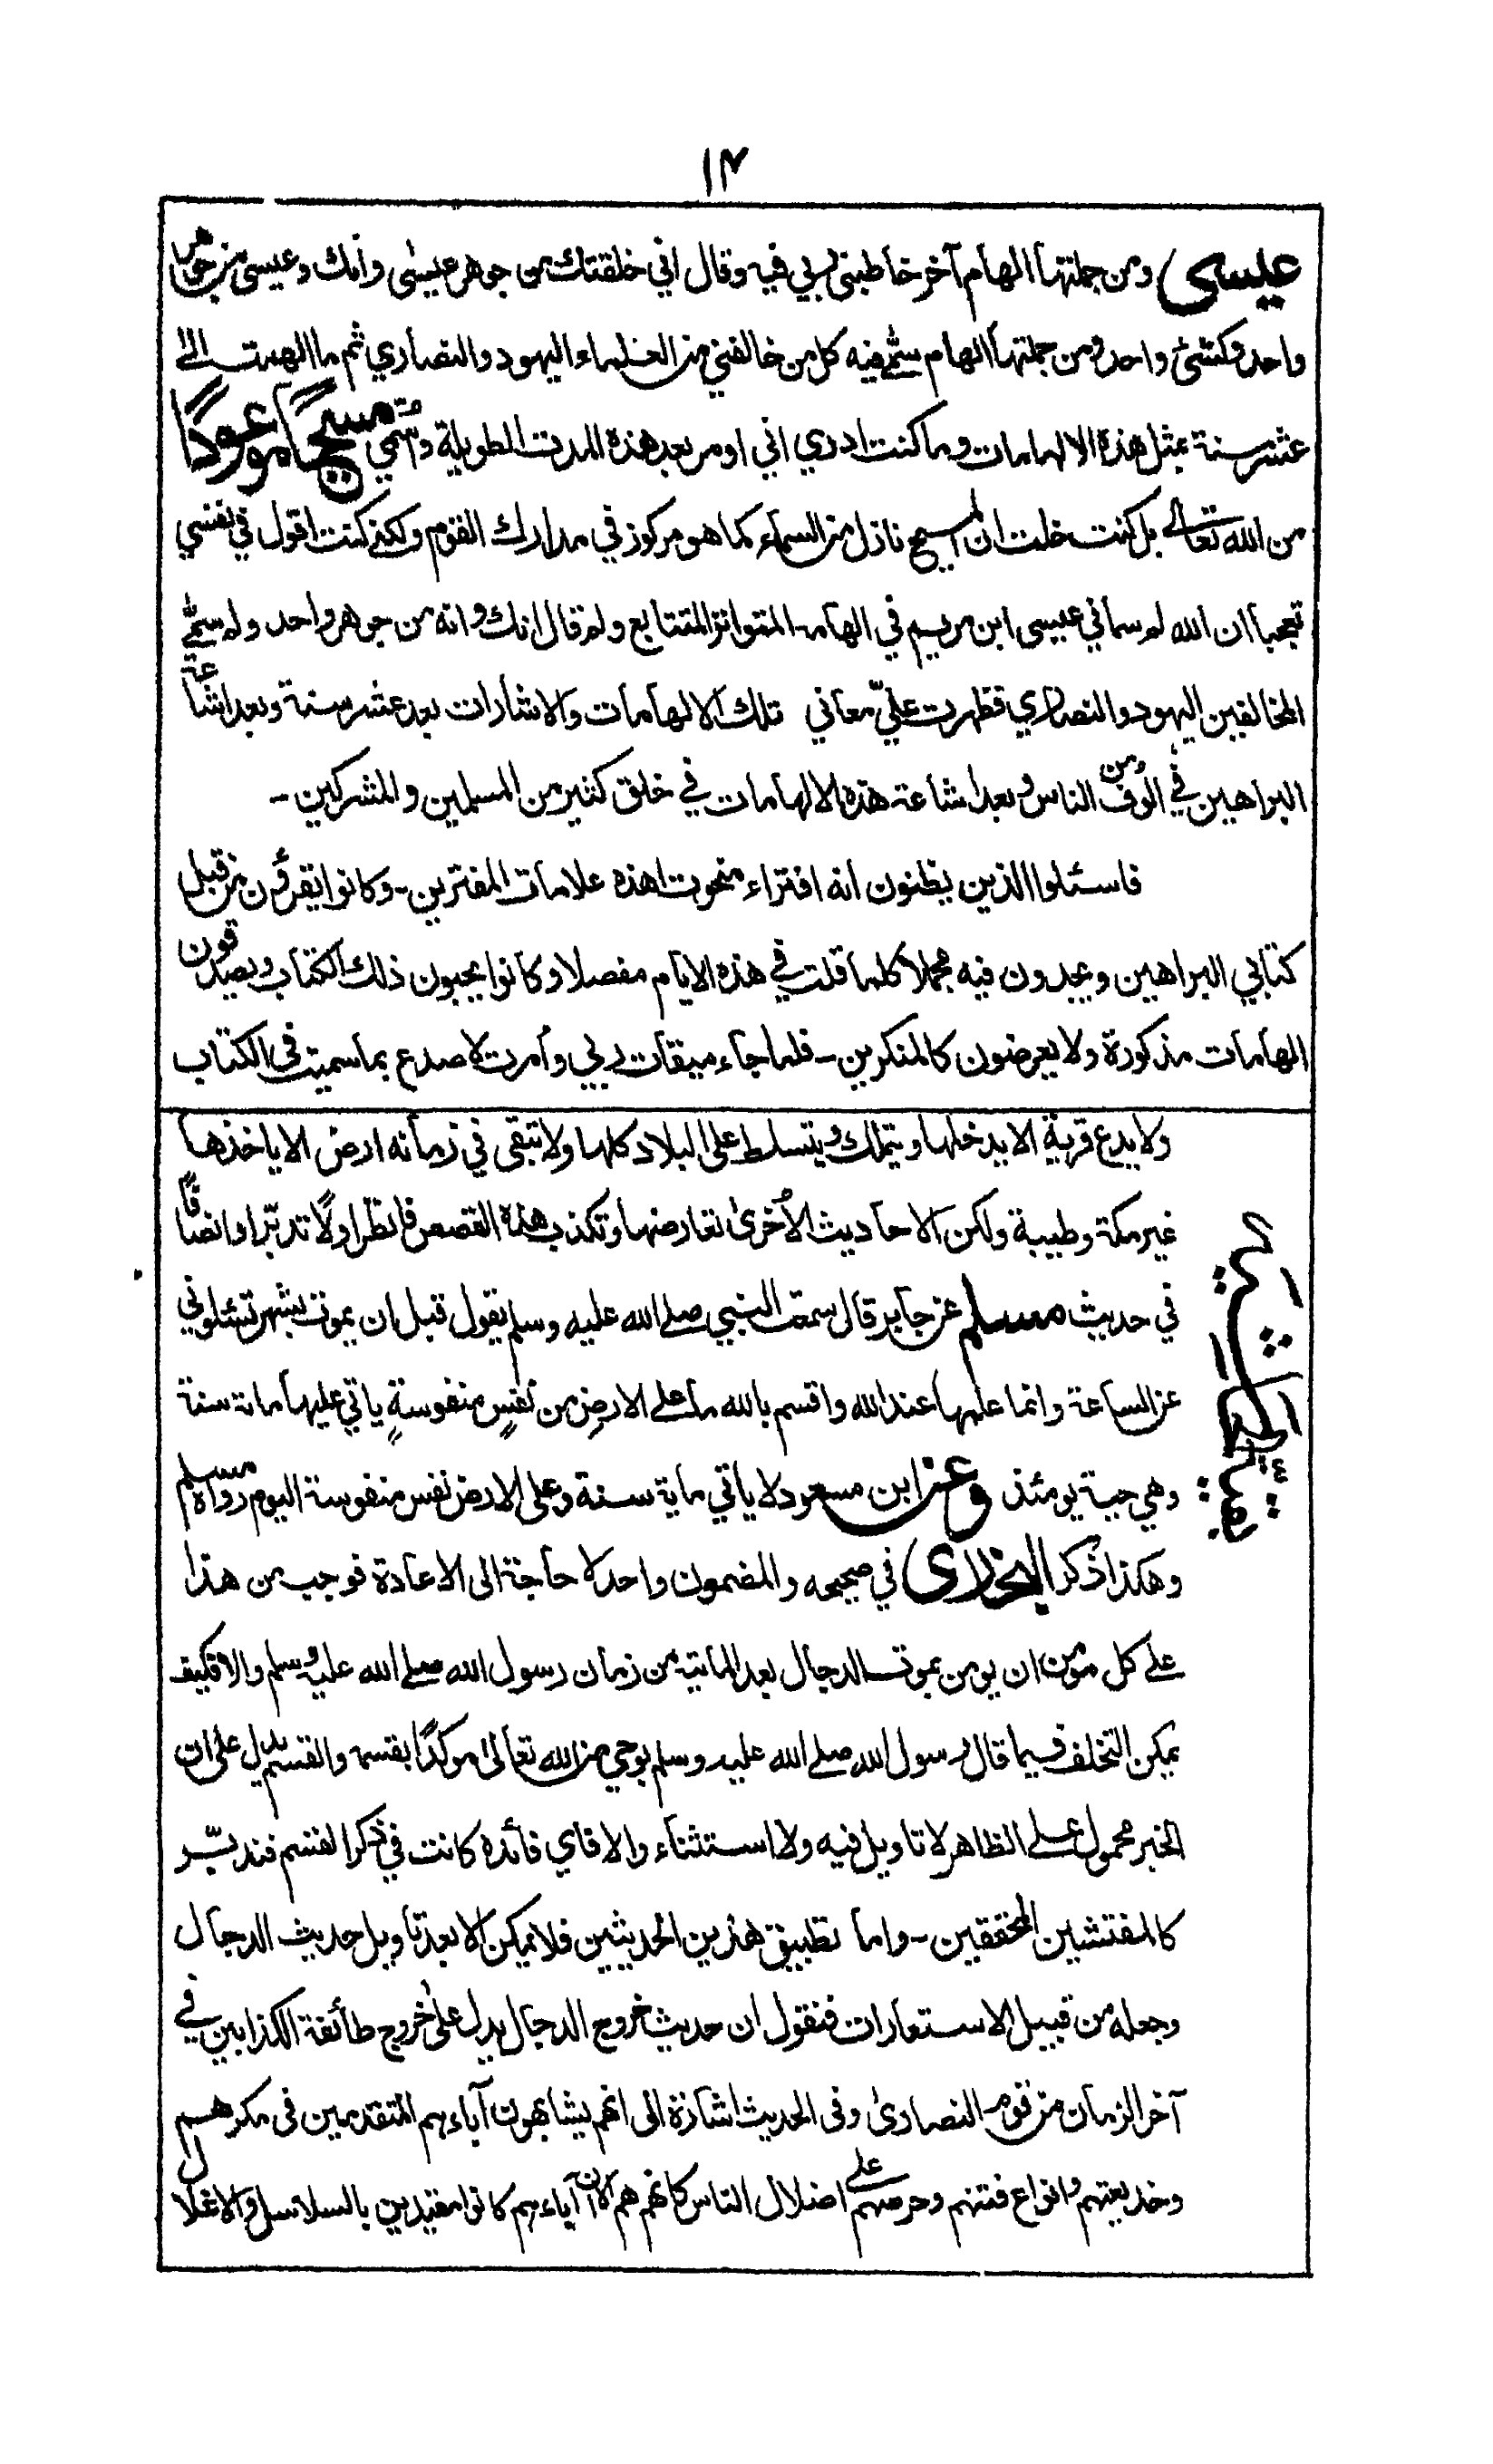 ١٣
عيسى ومن جملتها الهام آخر خاطبني ربي فيه وقال اني خلقتك من جوهر عيسٰى وانك وعيسى من جوهر
واحد وكشئ واحد ومن جملتها الهام سمّٰى فيه كل من خالفني من العلماء اليهود والنصاري ثم ما الهمت الٰى
عشر سنة بمثل هذه الالهامات وما كنت ادري اني اومر بعد هذه المدت الطويلة واُسمّي مسيحًا موعودًا
من الله تعالٰى بل كنت خلت ان المسيح نازل من السماء كما هو مركوز في مدارك القوم ولكني كنت اقول في نفسي
تعجبا ان الله لم سماني عيسى ابن مريم في الهامه المتواتر المتتابع ولم قال انك وانه من جوهر واحد ولم سمّٰى
المخالفين اليهود والنصاري فظهرت عليّ معاني تلك الالهامات والاشارات بعد عشر سنة وبعد اشاعة
البراهين في الوف من الناس وبعد اشاعة هذه الالهامات في خلق كثير من المسلمين والمشركين۔
فاسئلوا الذين يظنون انه افتراء منحوت اهذه علامات المفترين۔ وكانوا يقرؤن من قبل
كتابي البراهين ويجدون فيه مجملا كلما قلت في هذه الايام مفصلا وكانوا يحبون ذلك الكتاب ويصدقون
الهامات مذكورة ولا يعرضون كالمنكرين۔ فلما جاء ميقات ربي وأمرت لاصدع بما سميت في الكتاب
ولا يدع قرية الا يدخلها ويتملك ويتسلط على البلاد كلها ولا تبقى في زمانه ارض الا ياخذها
غير مكة وطيبة ولكن الاحاديث الأخرىٰ تعارضها وتكذب هذه القصص فانظر اولًا تدبّرا وانصافًا
في حديث مسلم عن جابر قال سمعت النبي صلے الله عليه وسلم يقول قبل ان يموت بشهر تسئلوني
عن الساعة وانما علمها عند الله واقسم بالله ما على الارضِ من نفسٍ منفوسةٍ ياتي عليها مائة سنة
وهي حية يومئذ وعن ابن مسعود لا ياتي ماية سنة وعلى الارض نفس منفوسة اليوم رواه مسلم
وهكذا ذكر البخاري في صحيحه والمضمون واحد لا حاجة الى الاعادة فوجب من هذا
علے كل مؤمن ان يومن بموت الدجال بعد المائية من زمان رسول الله صلے الله عليه وسلم والا فكيف
يمكن التخلف فيما قال رسول الله صلے الله عليه وسلم بوحي من الله تعالىٰ موكدًا بقسمه والقسم يدل على ان
الخبر محمول علے الظاهر لا تاويل فيه ولا استثناء والا فاي فائدة كانت في ذكر القسم فتدبّر
كالمفتشين المحققين۔ واما تطبيق هذين الحديثين فلا يمكن الا بعد تاويل حديث الدجال
وجعله من قبيل الاستعارات فنقول ان حديث خروج الدجال يدل علىٰ خروج طائفة الكذابين في
آخر الزمان من قوم النصارىٰ وفى الحديث اشارة الى انهم يشابهون آباءهم المتقدمين فى مكرهم
وخديعتهم وانواع فتنهم وحرصهم علے اضلال الناس كانهم هم الا ان آباءهم كانوا مقيدين بالسلاسل والاغلال